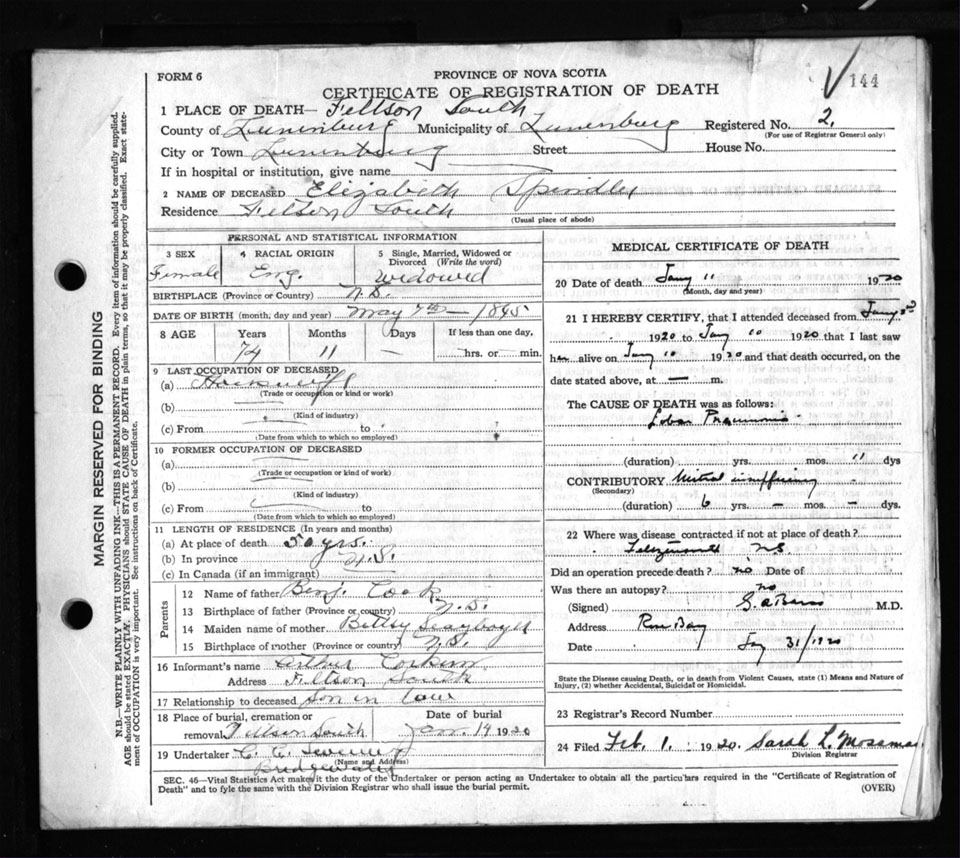 144
FORM 6
PROVINCE OF NOVA SCOTIA
CERTIFICATE OF REGISTRATION OF DEATH
1 PLACE OF DEATH— Feltson South
County of Lunenburg Municipality of Lunenburg Registered No. 2.
(For use of Registrar General only)
City or Town Lunenburg Street House No.
If in hospital or institution, give name
2 NAME OF DECEASED Elizabeth Spindler
Residence Feltson South
(Usual place of abode)
PERSONAL AND STATISTICAL INFORMATION
3 SEX 4 RACIAL ORIGIN 5 Single, Married, Widowed or Divorced (Write the word)
Female Eng. Widowed
BIRTHPLACE (Province or Country) N.S.
DATE OF BIRTH (month, day and year) May 7th — 1845
8 AGE Years Months Days If less than one day,
74 11 — hrs. or min.
9 LAST OCCUPATION OF DECEASED
(a) Housewife
(Trade or occupation or kind or work)
(b)
(Kind of industry)
(c) From to
(Date from which to which so employed)
10 FORMER OCCUPATION OF DECEASED
(a)
(Trade or occupation or kind of work)
(b)
(Kind of industry)
(c) From to
(Date from which to which so employed)
11 LENGTH OF RESIDENCE (In years and months)
(a) At place of death 50 yrs.
(b) In province N.S.
(c) In Canada (if an immigrant)
Parents
12 Name of father Benj. Cook
13 Birthplace of father (Province or country) N.S.
14 Maiden name of mother Bettsy
15 Birthplace of mother (Province or country) N.S.
16 Informant's name Arthur Corkum
Address Feltson South
17 Relationship to deceased Son in law
18 Place of burial, cremation or removal Feltson South Date of burial Jan. 14 1920
19 Undertaker C. C.
(Name and Address)
Bridgewater
MEDICAL CERTIFICATE OF DEATH
20 Date of death Jany 11 1920
(Month, day and year)
21 I HEREBY CERTIFY, that I attended deceased from Jany
1920 to Jany 10 1920 that I last saw
h alive on Jany 10 1920 and that death occurred, on the
date stated above, at — m.
The CAUSE OF DEATH was as follows:
Lobar Pneumonia
(duration) yrs. mos. 11 dys
CONTRIBUTORY Mitral insufficiency
(Secondary)
(duration) 6 yrs — mos — dys.
22 Where was disease contracted if not at place of death?
N.S.
Did an operation precede death? no Date of
Was there an autopsy? no
(Signed) M.D.
Address Rose Bay
Date Jany 31/1920
State the Disease causing Death, or in death from Violent Causes, state (1) Means and Nature of Injury, (2) whether Accidental, Suicidal or Homicidal.
23 Registrar's Record Number
24 Filed Feb. 1. 1920. Sarah L. Mossman
Division Registrar
SEC. 46—Vital Statistics Act makes it the duty of the Undertaker or person acting as Undertaker to obtain all the particulars required in the "Certificate of Registration of
Death" and to fyle the same with the Division Registrar who shall issue the burial permit. (OVER)
MARGIN RESERVED FOR BINDING
N.B.—WRITE PLAINLY WITH UNFADING INK—THIS IS A PERMANENT RECORD. Every item of information should be carefully supplied.
AGE should be stated EXACTLY. PHYSICIANS should STATE CAUSE OF DEATH in plain terms, so that it may be properly classified. Exact statement of OCCUPATION is very important. See instructions on back of Certificate.